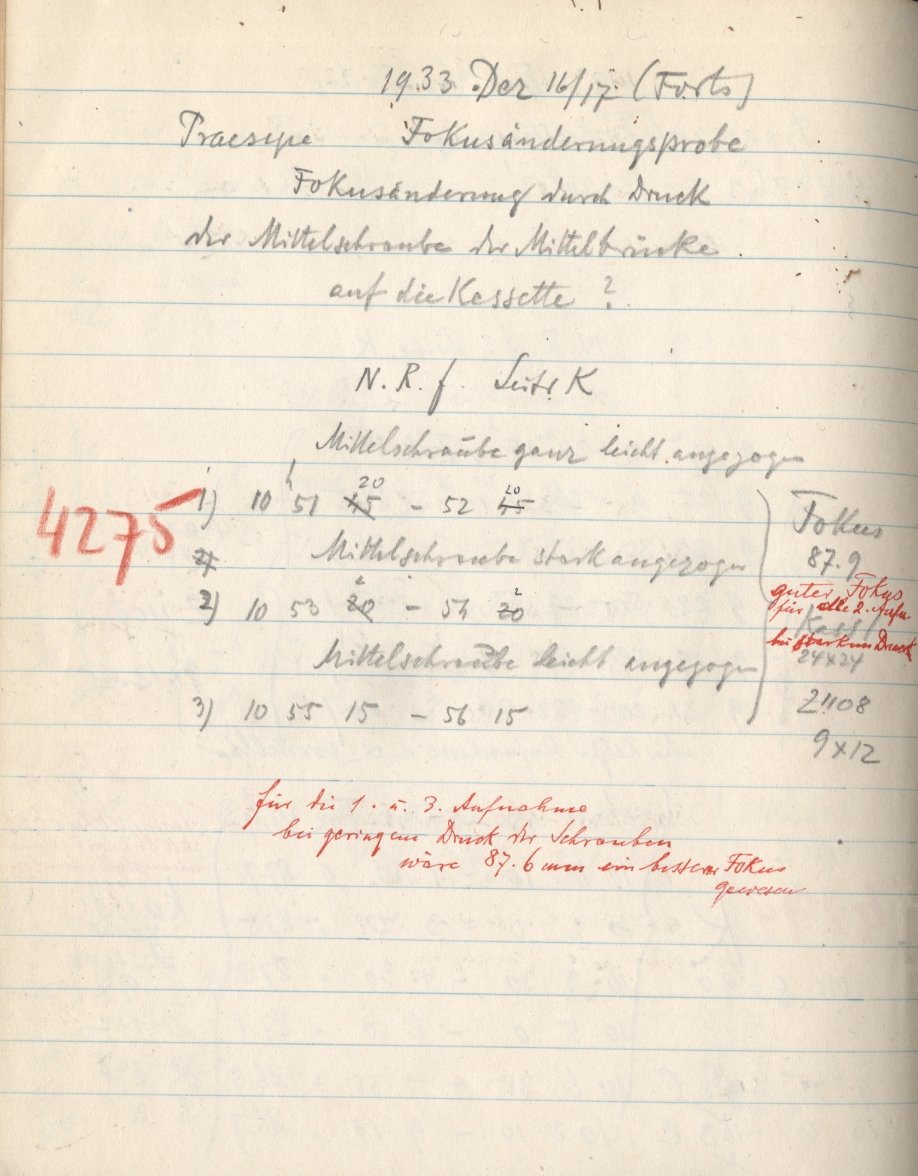 1933 Dez 16/17 (Forts)
Praesepe Fokusänderungsprobe
Fokusänderung durch Druck
der Mittelschraube der Mittelbrücke
auf die Kassette ?
N. R. f. Seite K
Mittelschraube ganz leicht angezogen
4275
1) 10 h 51 45 20 - 52 45 20
2) Mittelschraube stark angezogen
2) 10 53 20 2 - 54 20 2
Mittelschraube leicht angezogen
3) 10 55 15 - 56 15
Fokus
87.9
guter Fokus
für die 2. Aufn.
bei starkem Druck
Kass
24x24
Z1108
9x12
für die 1. u. 3. Aufnahme
bei geringem Druck der Schrauben
wäre 87.6 mm ein besserer Fokus
gewesen